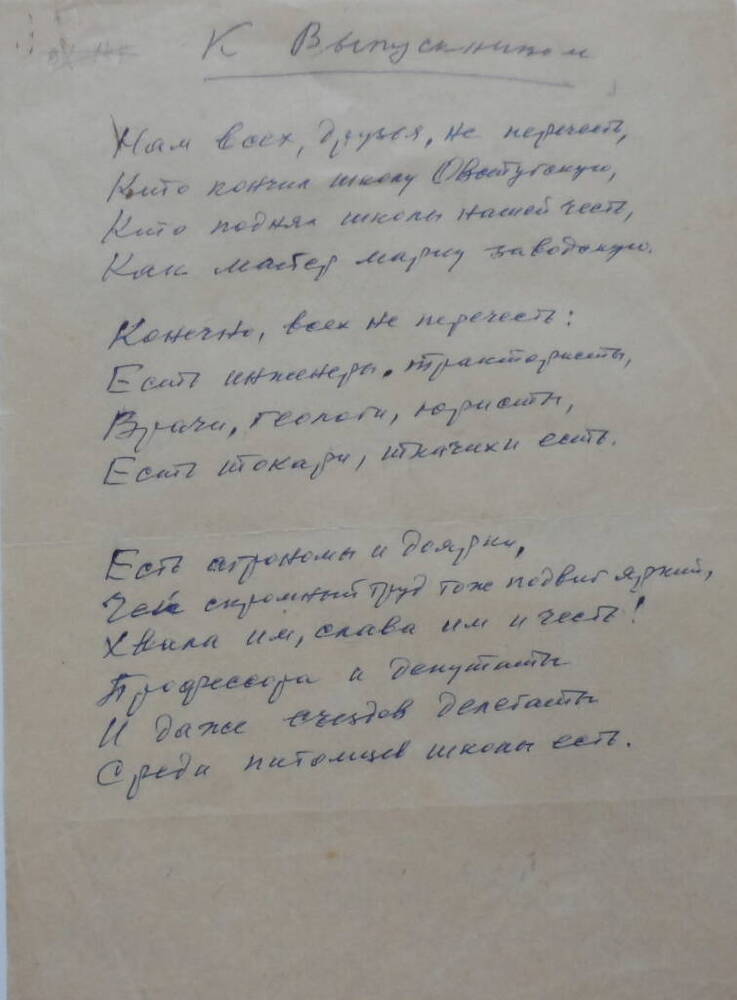 К Выпускникам
Нам всех, друзья, не перечесть,
Кто кончил школу Овстугскую,
Кто поднял школы нашей честь,
Как мастер марку заводскую.
Конечно, всех не перечесть:
Есть инженеры, трактористы,
Врачи, геологи, юристы,
Есть токари, ткачихи есть.
Есть агрономы и доярки,
Чей скромный труд тоже подвиг яркий,
Хвала им, слава им и честь!
Профессора и депутаты
И даже съездов делегаты
Среди питомцев школы есть.